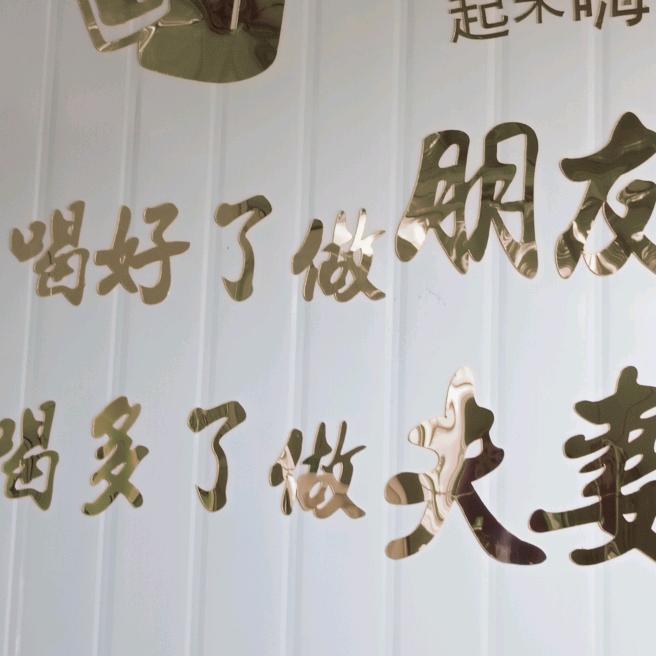 起来嗨
喝好了做朋友
喝多了做夫妻